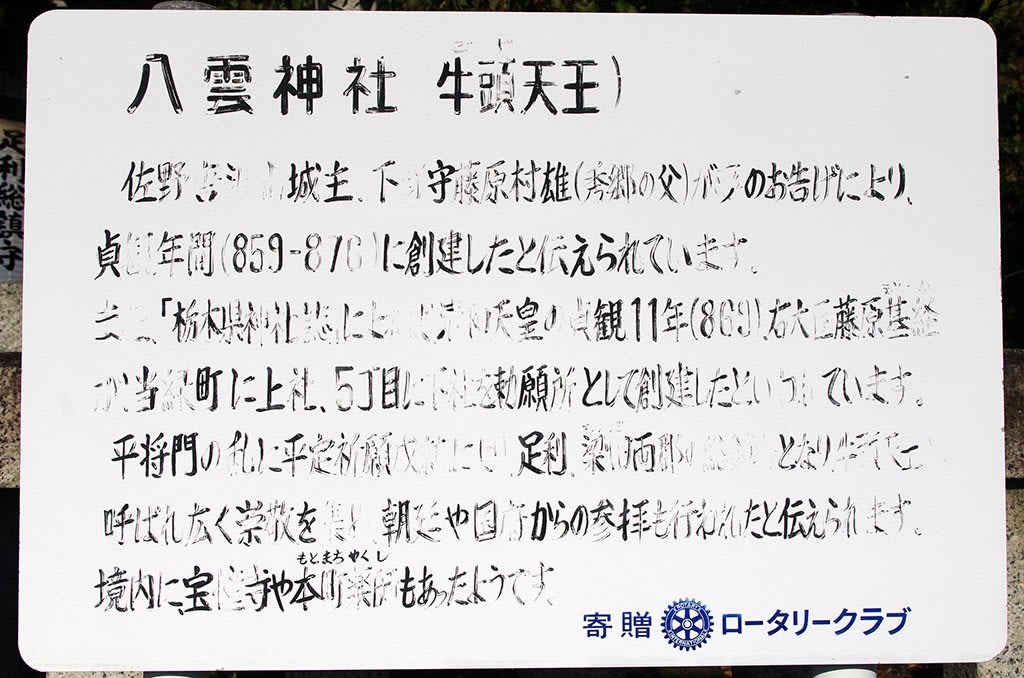 八雲神社 牛頭天王）
佐野 城主、下 守藤原村雄（秀郷の父）が夢のお告げにより、
貞観年間（859-876）に創建したと伝えられています。
「栃木県神社誌」によれば清和天皇の貞観11年（869）、右大臣藤原基経
が当緑町に上社、5丁目に下社を勅願所として創建したといわれています。
平将門の乱に平定祈願 足利、梁田両郡の総 となり牛頭
呼ばれ広く崇敬を 朝廷や国府からの参拝も行われたと伝えられます。
もとまちやくし
境内に、宝 寺や本町薬師もあったようです。
寄贈 ロータリークラブ
足利総鎮守